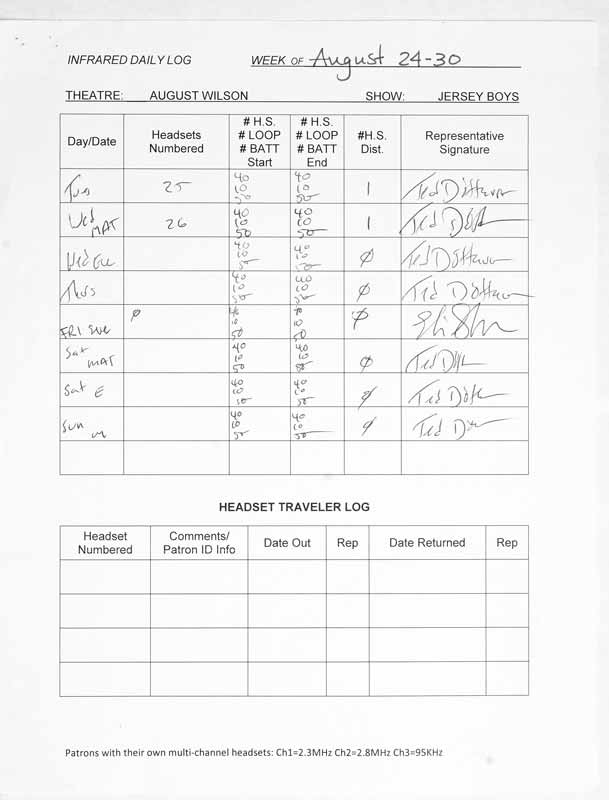 INFRARED DAILY LOG WEEK OF August 24-30
THEATRE: AUGUST WILSON SHOW: JERSEY BOYS
Day/Date Headsets Numbered # H.S. # LOOP # BATT Start # H.S. # LOOP # BATT End #H.S. Dist. Representative Signature
Tus 25 40 10 50 40 10 50 1 Ted
Wed MAT 26 40 10 50 40 10 50 1 Ted
Wed Eve 40 10 50 40 10 50 Ø Ted
Thus 40 10 50 40 10 50 Ø Ted
FRI Eve Ø 40 10 50 40 10 50 Ø
Sat MAT 40 10 50 40 10 50 Ø Ted
Sat E 40 10 50 40 10 50 Ø Ted
Sun M 40 10 50 40 10 50 Ø Ted
HEADSET TRAVELER LOG
Headset Numbered Comments/ Patron ID Info Date Out Rep Date Returned Rep
Patrons with their own multi-channel headsets: Ch1=2.3MHz Ch2=2.8MHz Ch3=95KHz